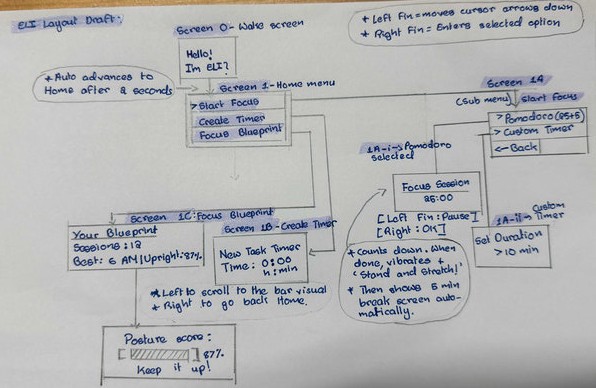 ELI Layout Draft:
Screen 0- Wake screen
Hello!
Im ELI?
* Left Fin = moves cursor arrows down
* Right Fin = Enters selected option
* Auto advances to
Home after 2 seconds
Screen 1-Home menu
> Start Focus
Create Timer
Focus Blueprint
Screen 1A
(Sub menu) Start Focus
> Pomodoro (25+5)
> Custom Timer
<- Back
1A-i-> Pomodoro
selected
Focus Session
25:00
[Left Fin: Pause]
[Right: OK]
* Counts down. When
done, vibrates +
'Stand and Stretch!'
* Then shows 5 min
break screen auto-
matically.
1A-ii-> Custom
Timer
Set Duration
> 10 min
Screen 1C: Focus Blueprint
Your Blueprint
Sessions: 12
Best: 6 AM|Upright: 87%
Screen 1B-Create Timer
New Task Timer
Time: 0:00
h:min
* Left to scroll to the bar visual
* Right to go back Home.
Posture score:
[ ] 87%
Keep it up!